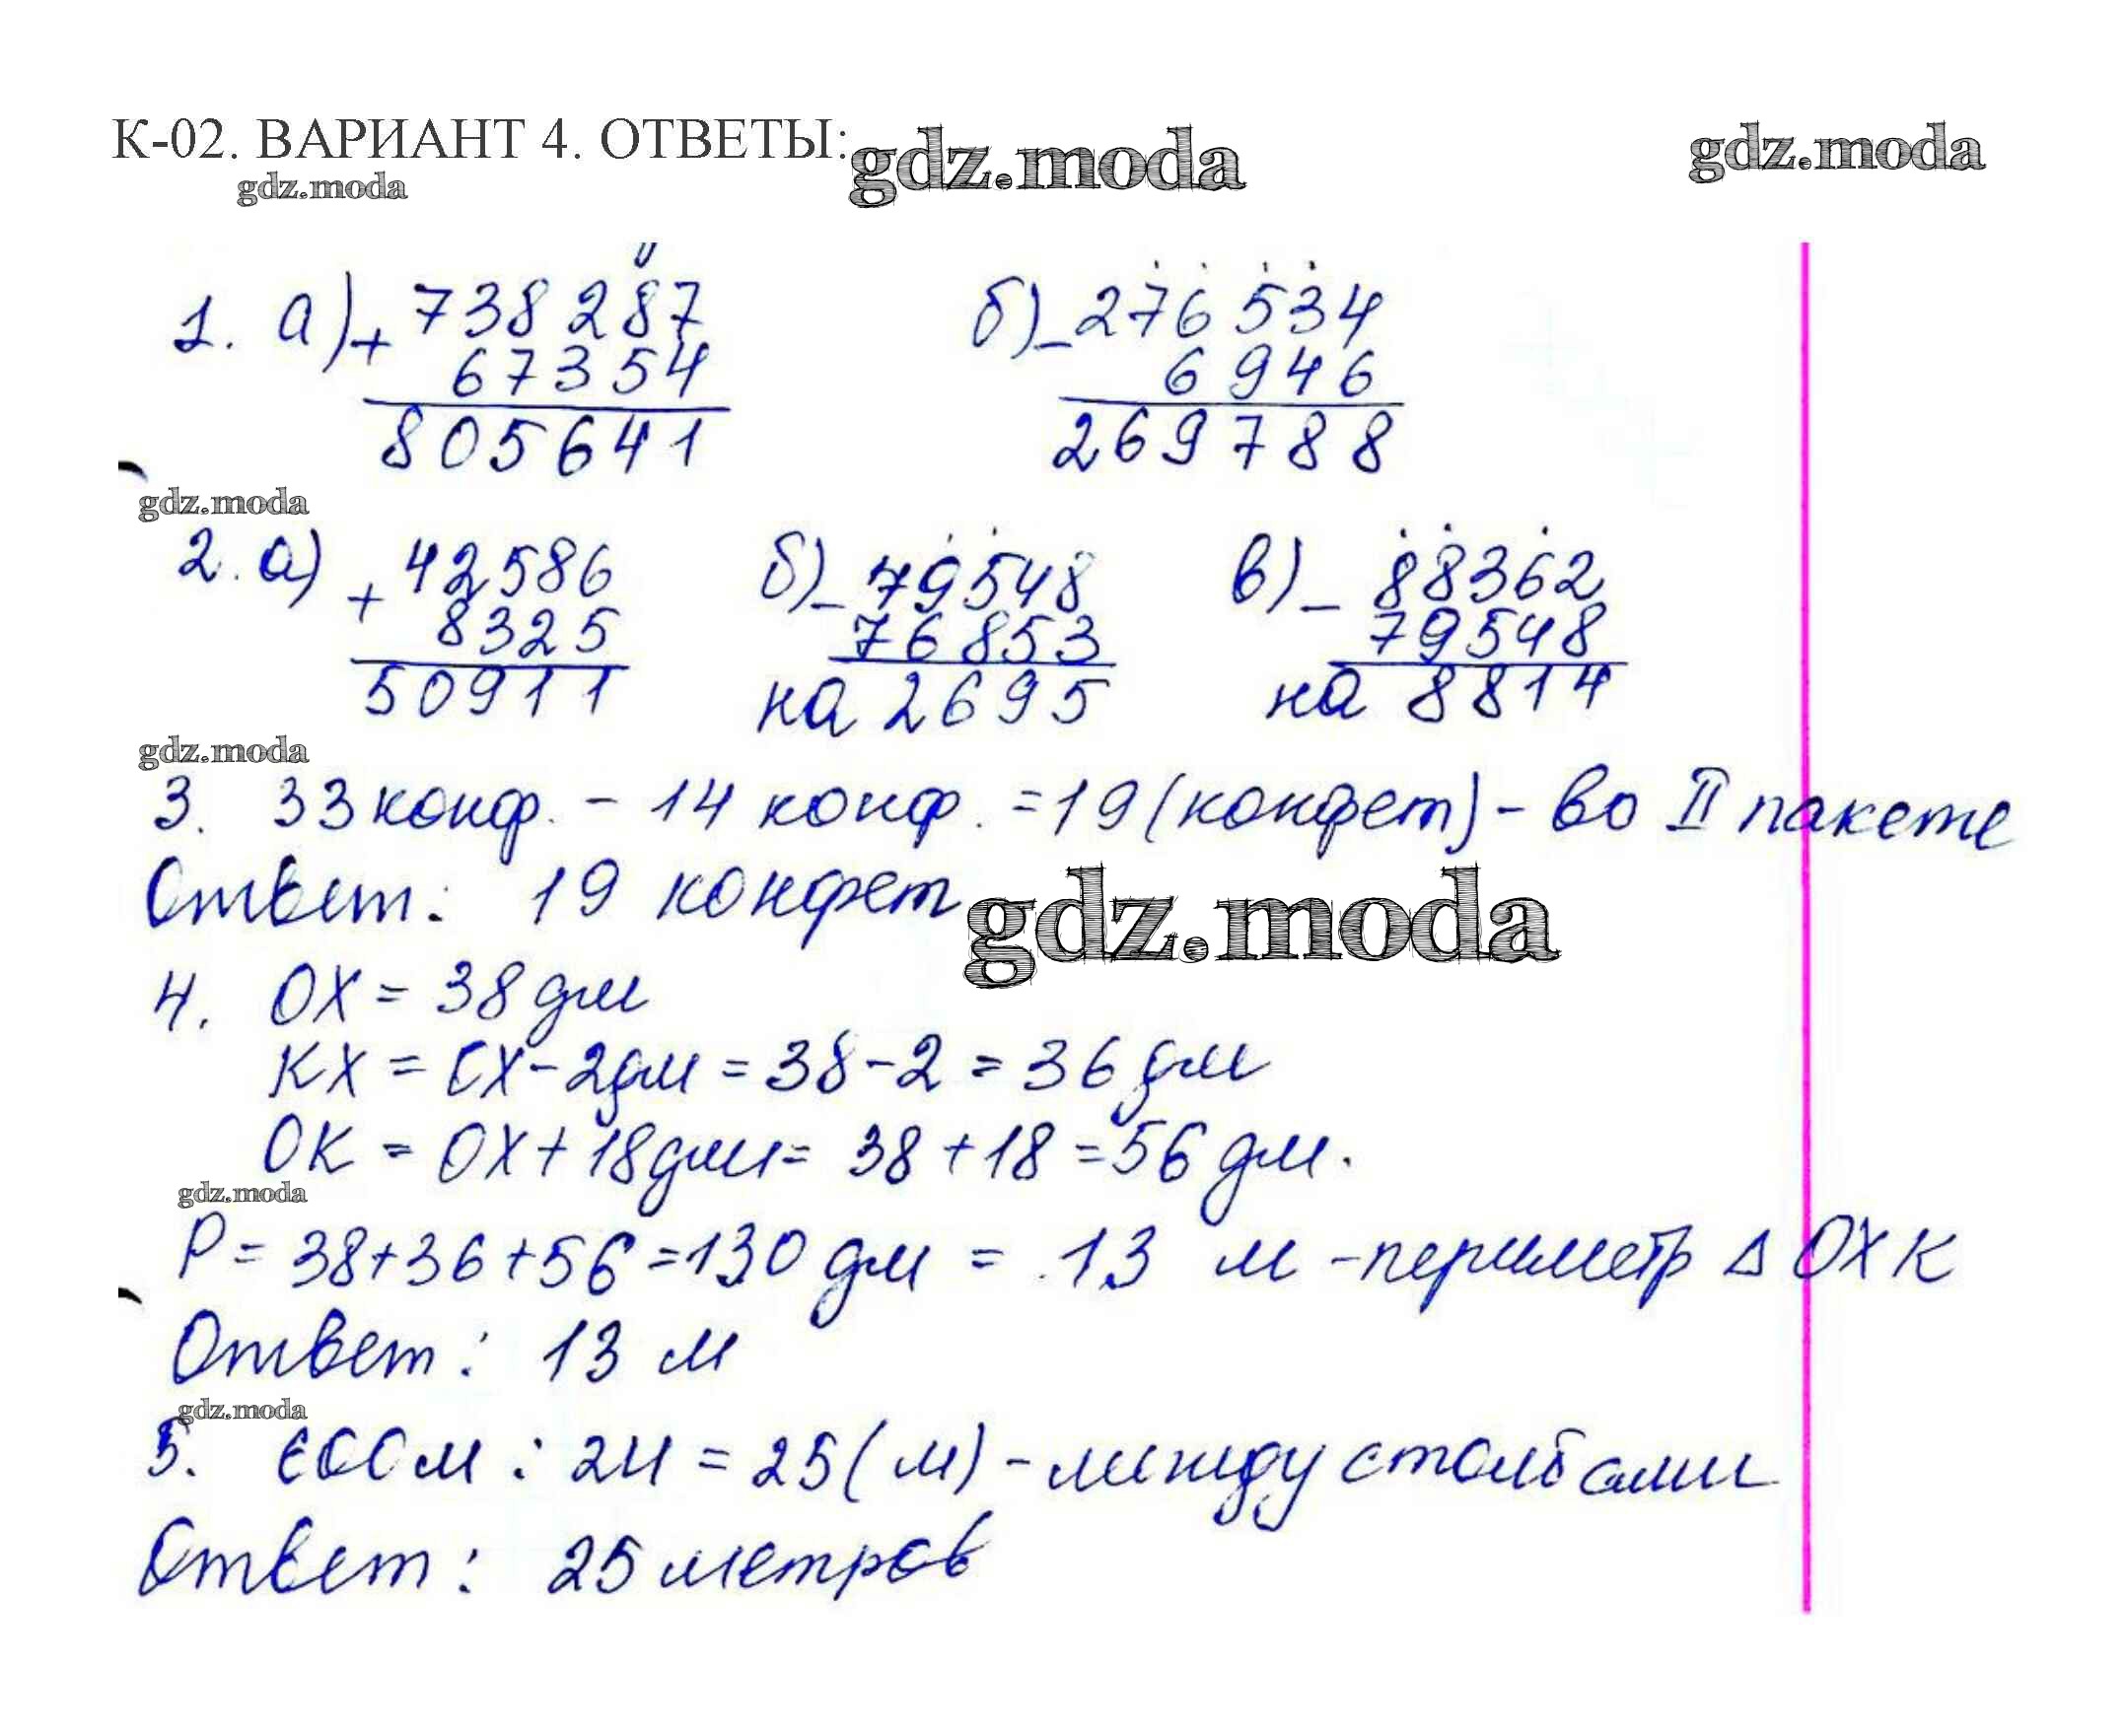 К-02. ВАРИАНТ 4. ОТВЕТЫ:
gdz.moda
gdz.moda
gdz.moda
1. а) + 738 287
67354
805641
б) - 276 534
6 946
269788
gdz.moda
2. а) + 42586
8325
50911
б) - 79548
76853
на 2695
в) - 88362
79548
на 8814
gdz.moda
3. 33 конф. - 14 конф. = 19 (конфет) - во II пакете
Ответ: 19 конфет
gdz.moda
4. OX = 38 дм
KX = OX - 2дм = 38 - 2 = 36 дм
OK = OX + 18дм = 38 + 18 = 56 дм.
gdz.moda
P = 38 + 36 + 56 = 130 дм = 13 м - периметр Δ OXK
Ответ: 13 м
gdz.moda
5. 600 м : 24 = 25 (м) - между столбами
Ответ: 25 метров